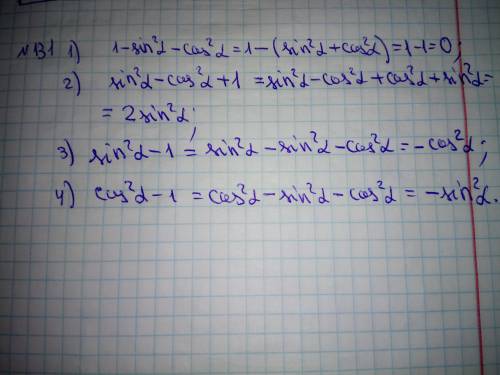 №131 1) 1-sin²α-cos²α=1-(sin²α+cos²α)=1-1=0;
2) sin²α-cos²α+1=sin²α-cos²α+cos²α+sin²α=
=2sin²α;
3) sin²α-1=sin²α-sin²α-cos²α=-cos²α;
4) cos²α-1=cos²α-sin²α-cos²α=-sin²α.